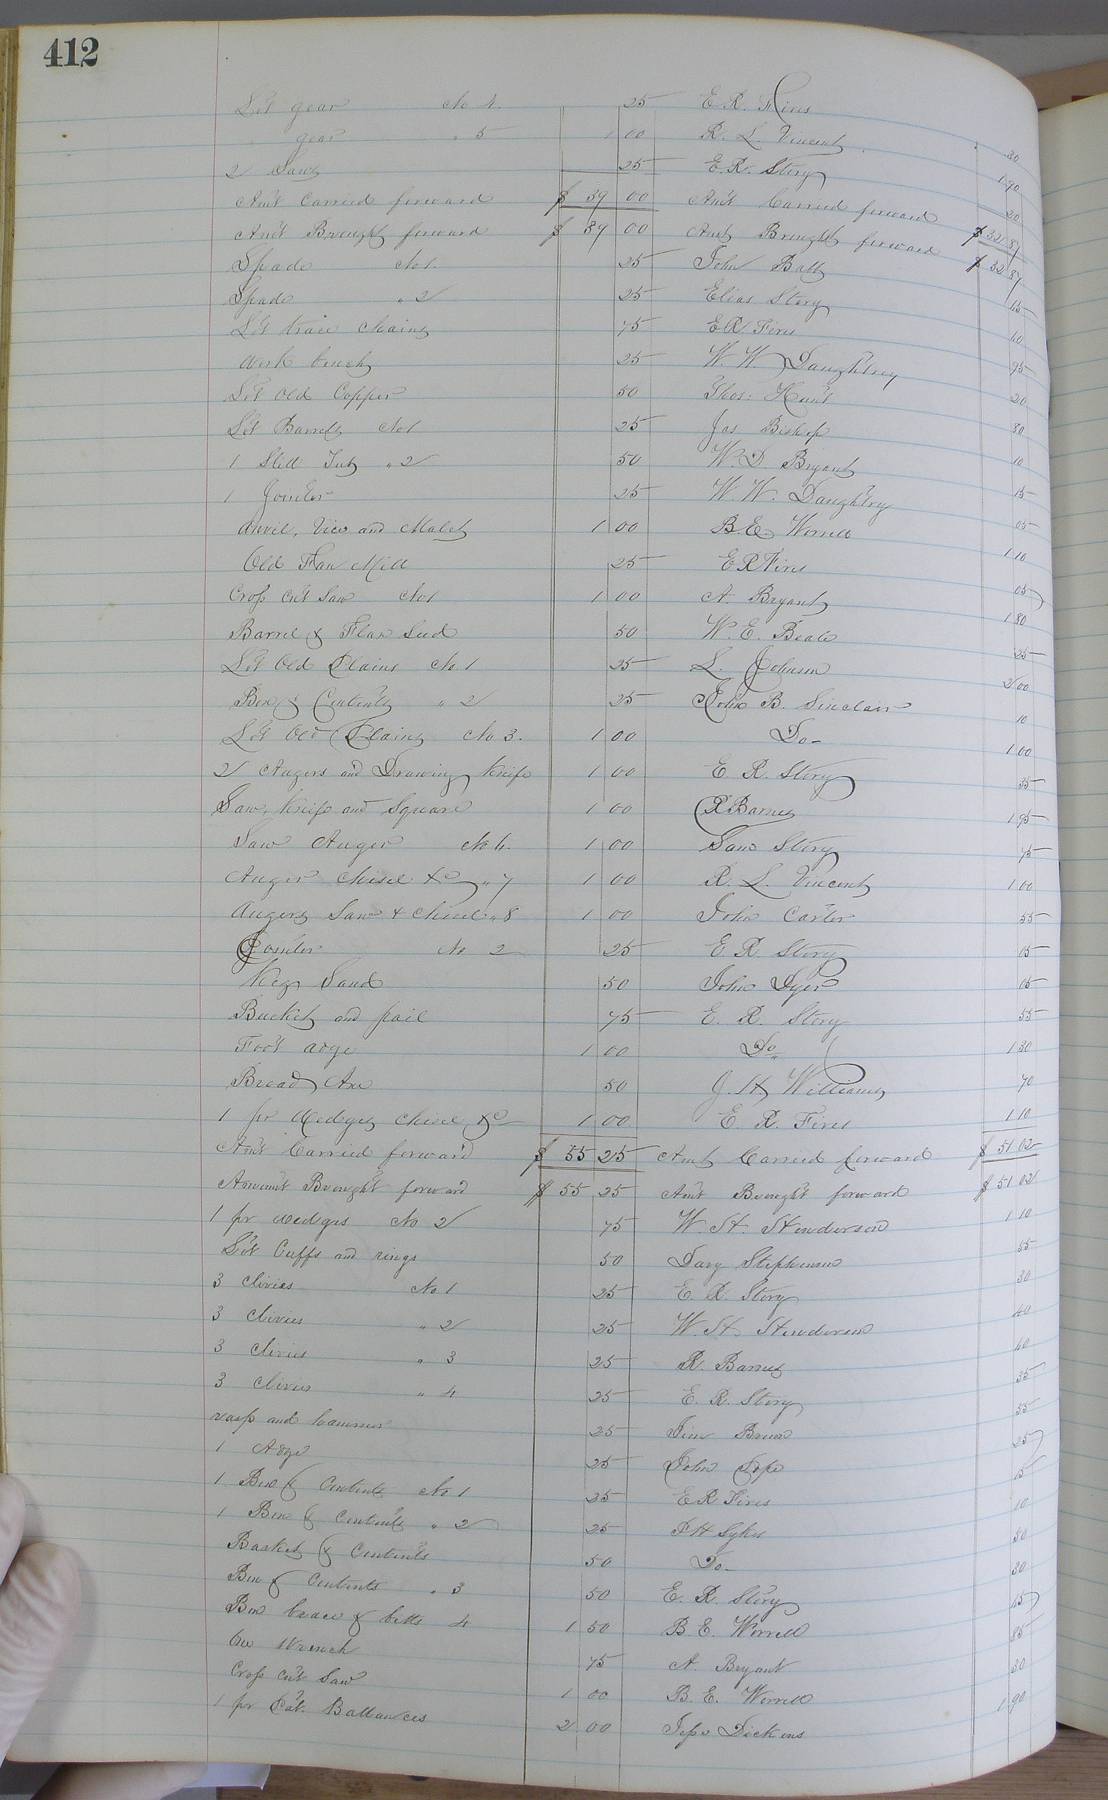 412
Lot gear No 4. 25 E. R. Fires 30
" gear " 5 1 00 R. L. Vincent 1 90
2 Saws 25 E. R. Story 20
Am't Carried forward $ 39 00 Am't Carried forward $ 32 87
Am't Brought forward $ 39 00 Amt Brought forward $ 32 87
Spade No 1. 25 John Babb 15
Spade " 2 25 Elias Story 10
Lot trace chains 75 E R Fires 95
Work bench 25 W W Daughtrey 20
Lot Old Copper 50 Thos: Hunt 80
Lot Barrels No 1 25 Jas Bishop 10
1 Still Tub " 2 50 W. D Bryant 15
1 Jointer 25 W. W. Daughtry 05
Anvil, Vice and 1 00 B. E. Worrell 1 10
Old Fan Mill 25 E R Fires 05
Crop cut Saw No 1 1 00 A. Bryant 1 80
Barrel & Flax Seed 50 W. E. Beale 25
Lot Old Plains No. 1 25 L. Johnson 2 00
Box & Contents " 2 25 John B. Sinclair 10
Lot Old Plains No 3. 1 00 Do- 1 00
2 Augers and Drawing Knife 1 00 E. R. Story 35
Saw, Knife and Square 1 00 R Barnes 1 95
Saw Auger No 6. 1 00 Sam Story 75
Auger Chisel &c " 7 1 00 R. L. Vincent 1 00
Augers Saw & Chisel " 8 1 00 John Carter 55
Jointer No 2 25 E. R. Story 05
Keg Sand 50 John Dyer 05
Bucket and pail 75 E. R. Story 55
Foot adge 1 00 Do 1 30
Broad Axe 50 J. H Williams 70
1 pr Wedges Chisel &c 1 00 E. R. Fires 1 10
Am't Carried forward $ 55 25 Amt Carried forward $ 51 02
Amount Brought forward $ 55 25 Am't Brought forward $ 51 02
1 pr wedges No 2 75 W. H. Henderson 1 10
Lot Cuffs and rings 50 Davy Stephenson 55
3 Clivies No 1 25 E. R Story 30
3 Clivies " 2 25 W. H. Henderson 40
3 Clivies " 3 25 R. Barnes 40
3 Clivies " 4 25 E. R. Story 35
rasp and hammer 25 Jim 55
1 Adge 25 John Pope 25
1 Box & Contents No 1 25 E R Fires 15
1 Box & Contents " 2 25 P H Sykes 10
Basket & Contents 50 Do- 50
Box & Contents " 3 50 E. R. Story 30
Box brace & bitts 4 1 50 B. E. Worrell 15
Wrench 75 A. Bryant 85
Crop cut Saw 1 00 B. E. Worrell 30
1 pr Pat. Ballances 2 00 Jeps Dickens 1 90